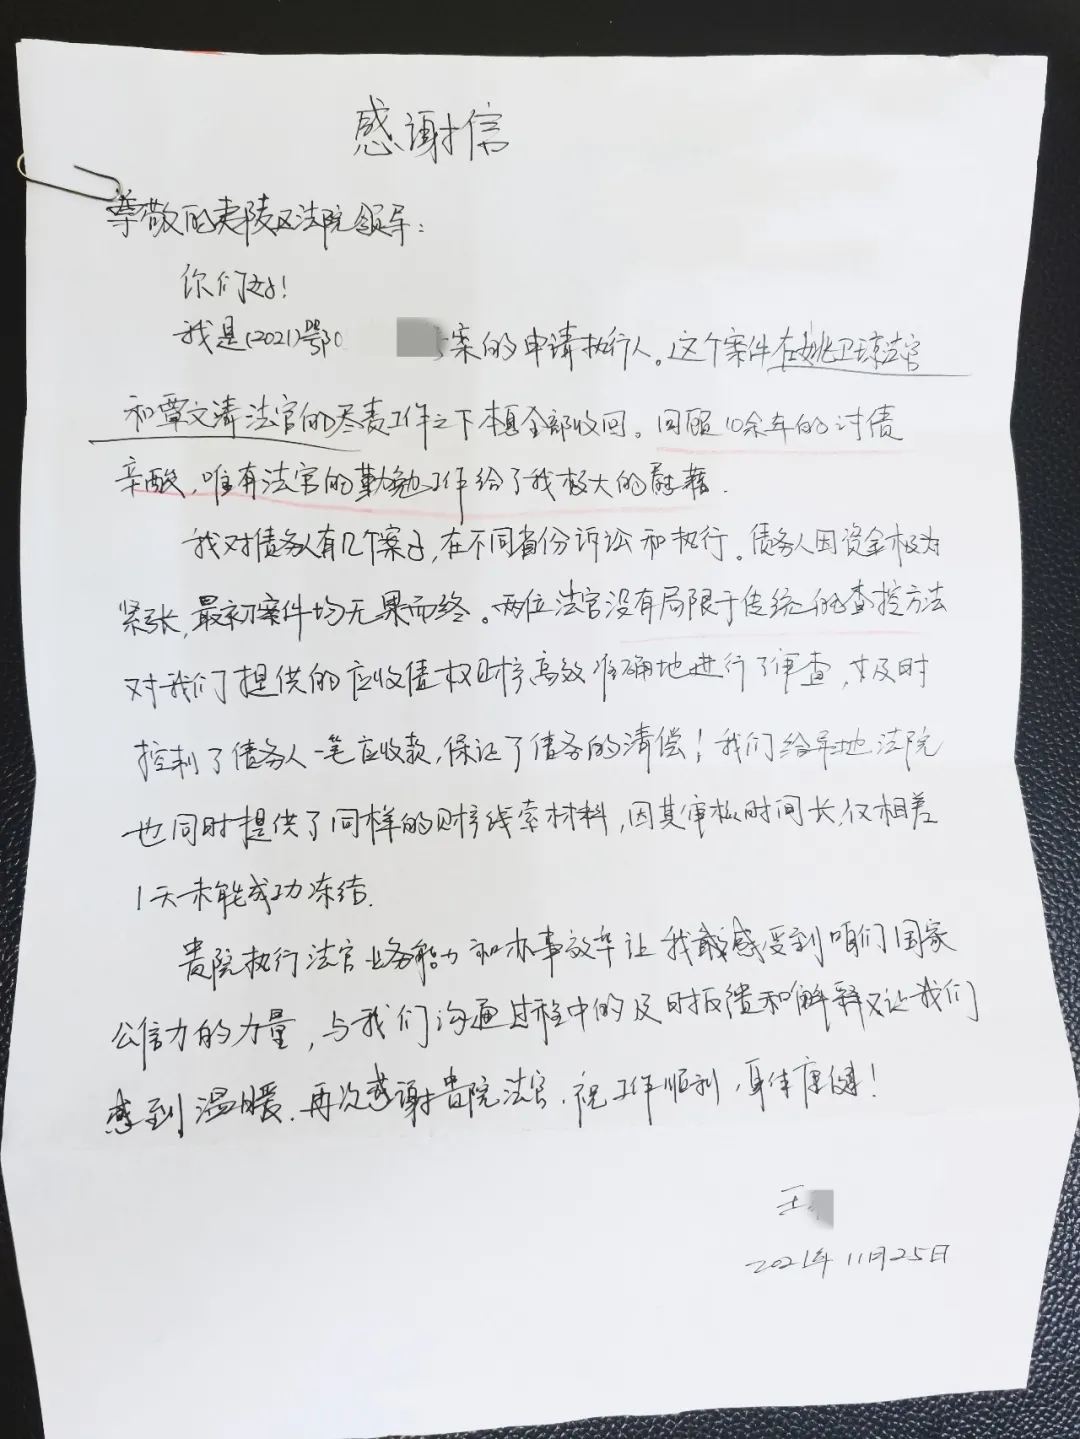 感谢信
尊敬的夷陵区法院领导：
你们好！
我是(2021)鄂0 案的申请执行人。这个案件在姚卫琼法官
和覃文清法官的尽责工作之下本息全部收回。回顾10余年的讨债
辛酸，唯有法官的勤勉工作给了我极大的慰藉.
我对债务人有几个案子，在不同省份诉讼和执行。债务人因资金极为
紧张，最初案件均无果而终。两位法官没有局限于传统的查控方法
对我们提供的应收债权财产高效准确地进行了审查，并及时
控制了债务人一笔应收款，保证了债务的清偿！我们给异地法院
也同时提供了同样的财产线索材料，因其审批时间长，仅相差
1天未能成功冻结.
贵院执行法官业务能力和办事效率让我最感受到咱们国家
公信力的力量，与我们沟通过程中的及时反馈和解释又让我们
感到温暖.再次感谢贵院法官.祝工作顺利，身体康健！
王
2021年11月25日